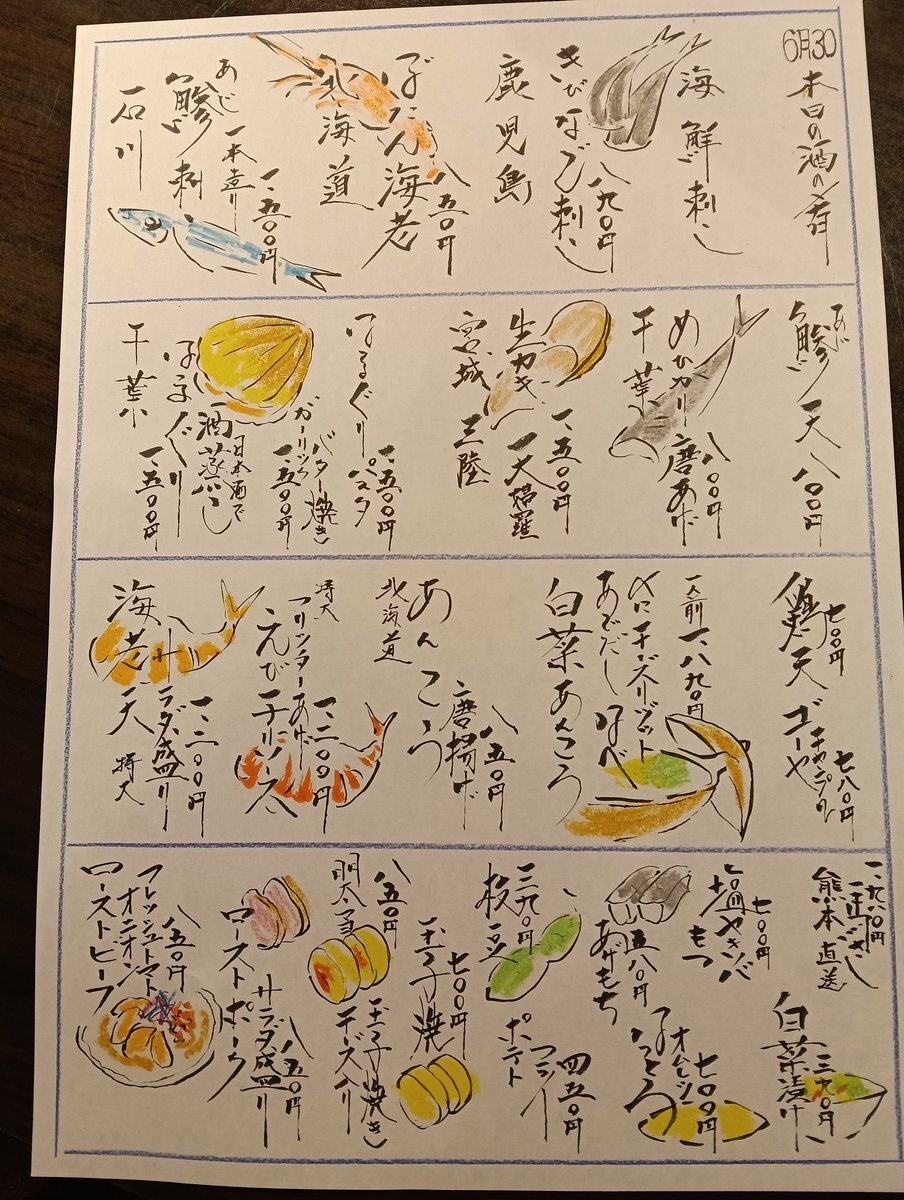 6月30
本日の酒の肴
海鮮刺し
きびなご刺し
八九〇円
鹿児島
ぼたん海老
八五〇円
北海道
あじ
鯵刺
一本造り
一、五〇〇円
石川
あじ
鯵天
八〇〇円
めひかり唐あげ
八〇〇円
千葉
生かき
天婦羅
一、五〇〇円
宮城 三陸
はまぐりパスタ
一、五〇〇円
ガーリックバター焼き
一、五〇〇円
日本酒で
酒蒸し
はまぐり
一、五〇〇円
千葉
鶏天
七〇〇円
ゴーヤ
チャンプル
七八〇円
一人前 一、八九〇円
〆にチーズリゾット
あごだし
なべ
白菜あんこう
あんこう
唐揚げ
八五〇円
北海道
特大
フリッターあげ
えびチリソース
一、二〇〇円
海老天
サラダ盛り
特大
一、二〇〇円
熊本直送
白菜漬け
三九〇円
塩やきソバ
もつ
七〇〇円
あげもち
五八〇円
なっとう
オムレツ
七〇〇円
枝豆
三九〇円
ポテト
フライ
四五〇円
玉子焼
七〇〇円
明太子
八五〇円
玉子焼き
チーズ入り
ローストポーク
サラダ盛り
八五〇円
フレッシュトマト
オニオン
ローストビーフ
八五〇円